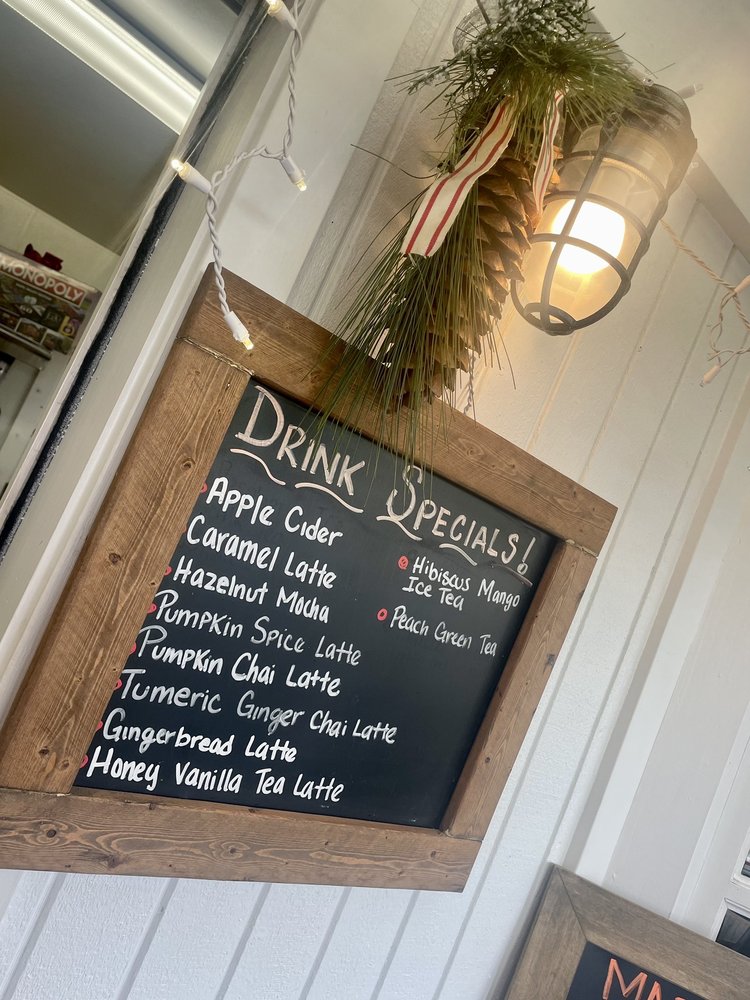 MONOPOLY
DRINK SPECIALS!
Apple Cider
Caramel Latte
Hazelnut Mocha
Pumpkin Spice Latte
Pumpkin Chai Latte
Tumeric Ginger Chai Latte
Gingerbread Latte
Honey Vanilla Tea Latte
Hibiscus Mango
Ice Tea
Peach Green Tea